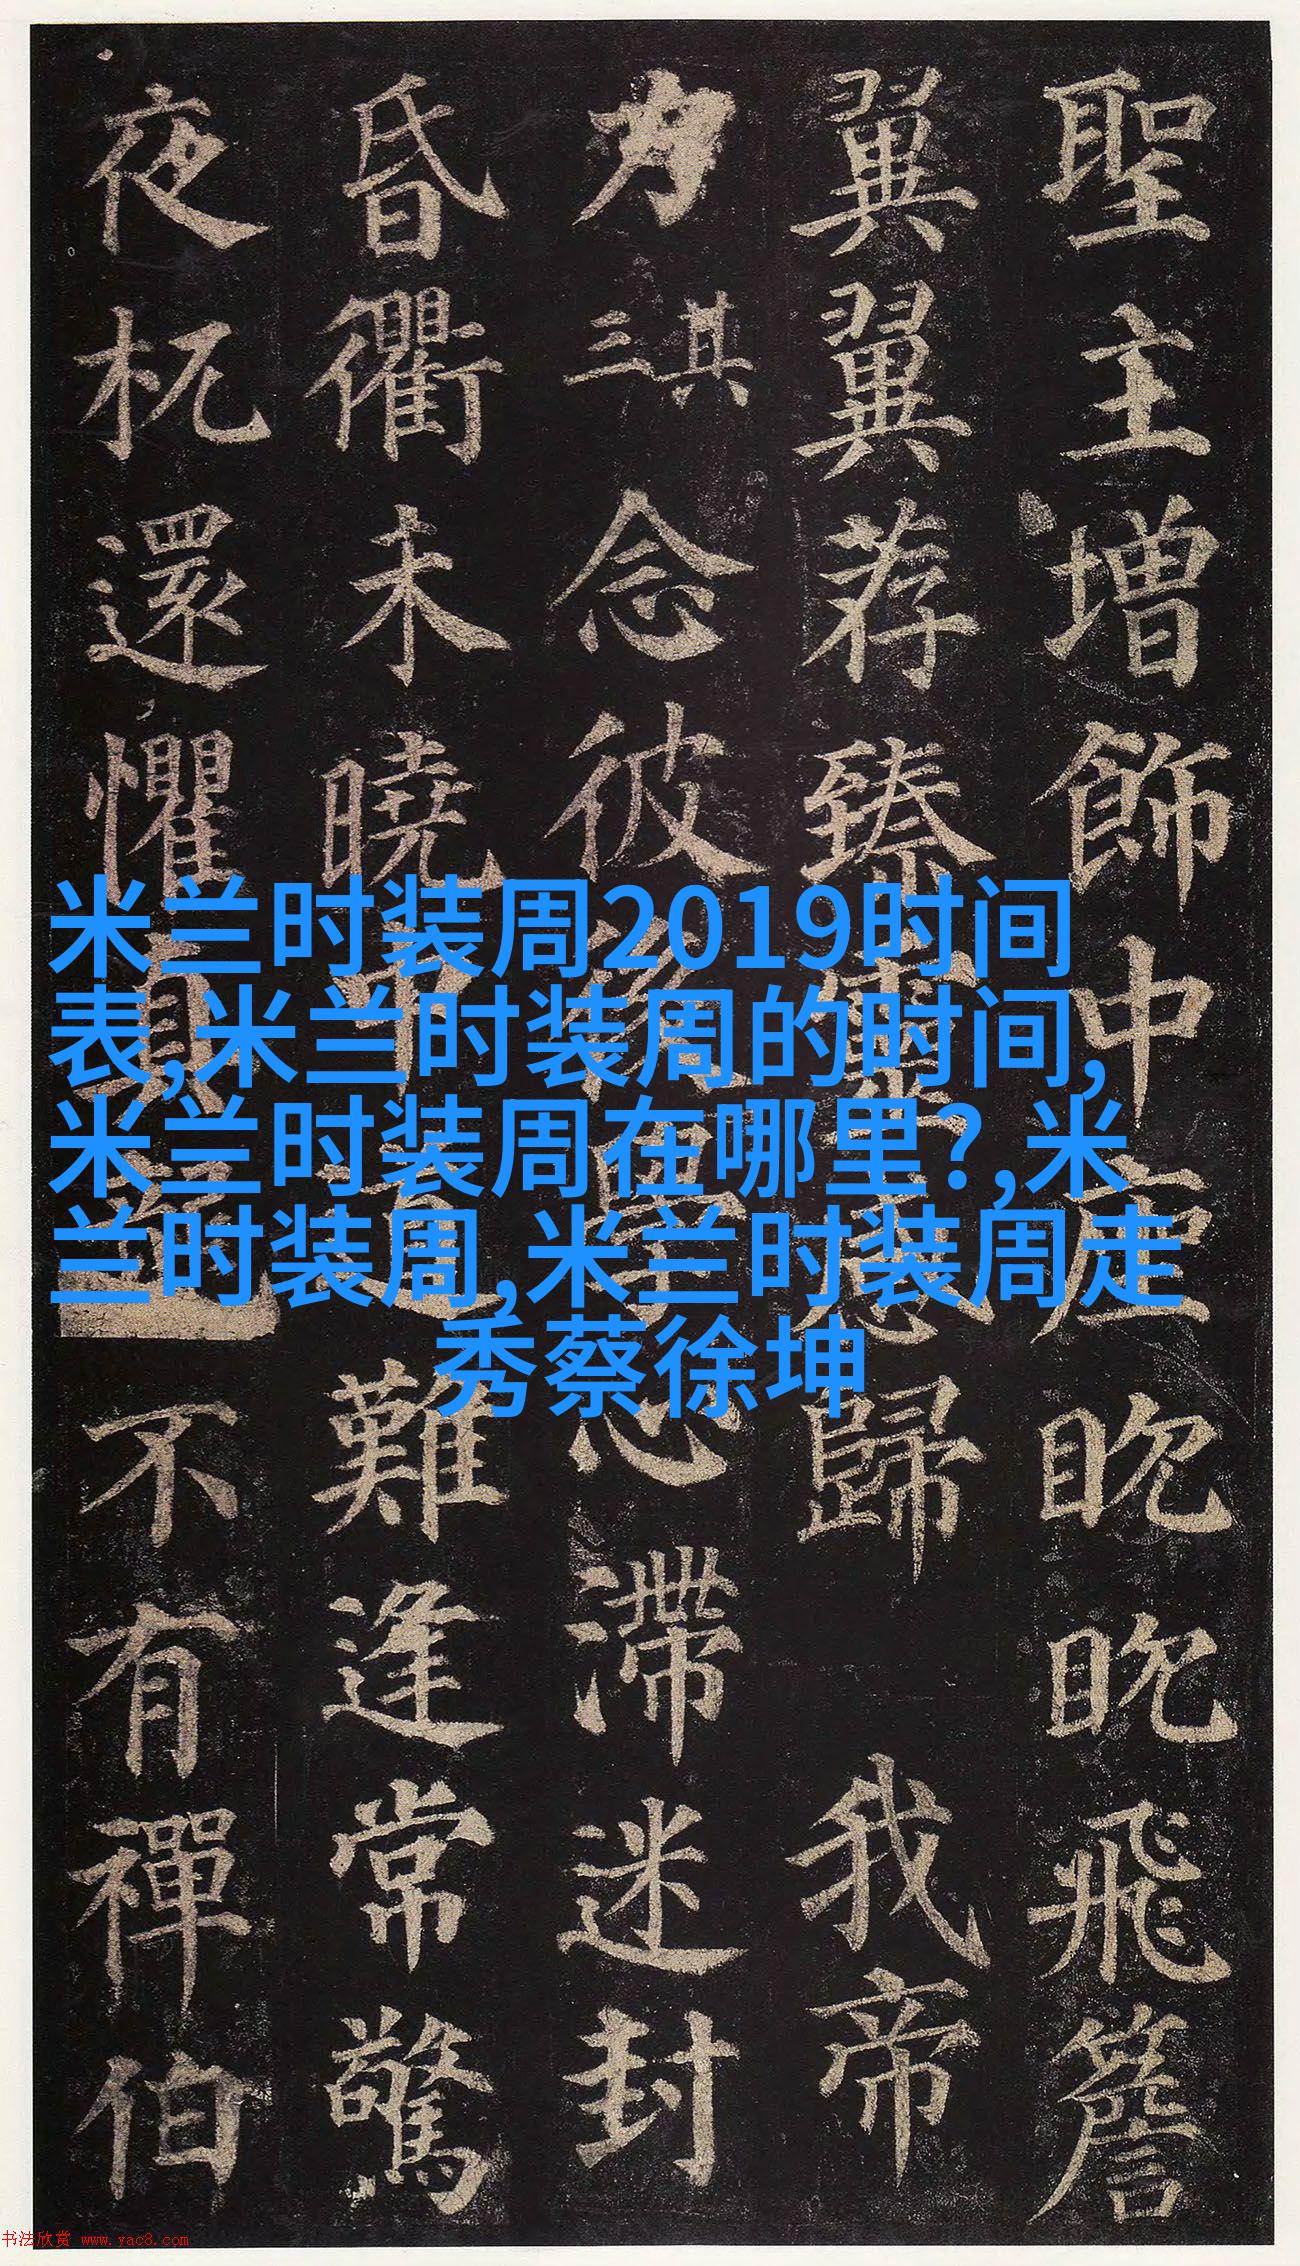 聖主增飾中座眈眈飛簷
翼翼荐臻靈感歸我帝
力其三念彼後學心滯迷封
昏衢未曉中道難逢常驚
夜杌還懼真龍不有禪伯
米兰时装周2019时间
表,米兰时装周的时间,
米兰时装周在哪里?,米
兰时装周,米兰时装周走
秀蔡徐坤
书法欣赏 www.yac8.com